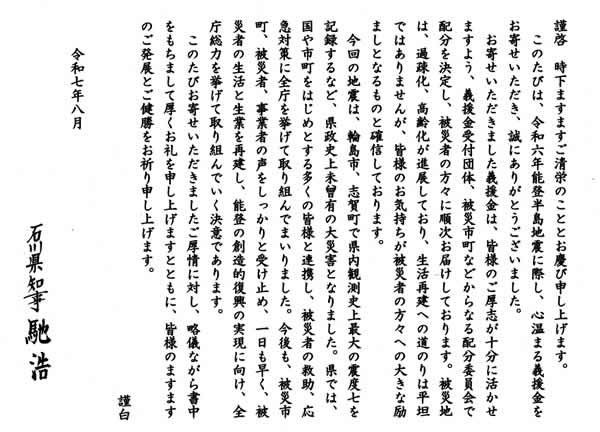 謹啓　時下ますますご清栄のこととお慶び申し上げます。
このたびは、令和六年能登半島地震に際し、心温まる義援金を
お寄せいただき、誠にありがとうございました。
お寄せいただきました義援金は、皆様のご厚志が十分に活かせ
ますよう、義援金受付団体、被災市町などからなる配分委員会で
配分を決定し、被災者の方々に順次お届けしております。被災地
は、過疎化、高齢化が進展しており、生活再建への道のりは平坦
ではありませんが、皆様のお気持ちが被災者の方々への大きな励
ましとなるものと確信しております。
今回の地震は、輪島市、志賀町で県内観測史上最大の震度七を
記録するなど、県政史上未曾有の大災害となりました。県では、
国や市町をはじめとする多くの皆様と連携し、被災者の救助、応
急対策に全庁を挙げて取り組んでまいりました。今後も、被災市
町、被災者、事業者の声をしっかりと受け止め、一日も早く、被
災者の生活と生業を再建し、能登の創造的復興の実現に向け、全
庁総力を挙げて取り組んでいく決意であります。
このたびお寄せいただきましたご厚情に対し、略儀ながら書中
をもちまして厚くお礼を申し上げますとともに、皆様のますます
のご発展とご健勝をお祈り申し上げます。
謹白
令和七年八月
石川県知事 馳浩